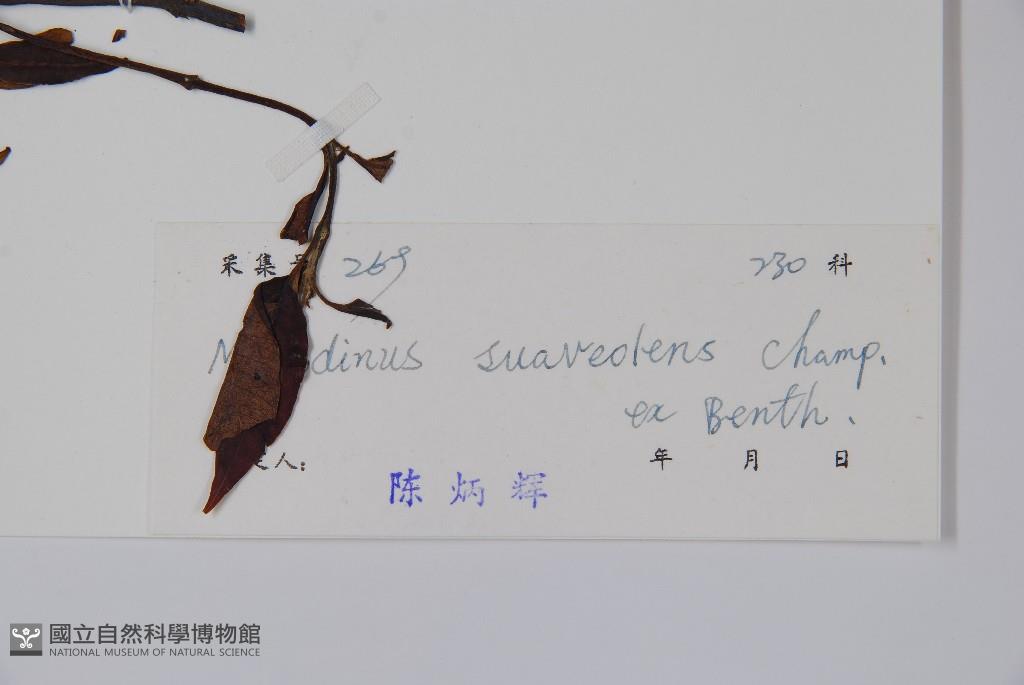 采集号 269 230 科
M dinus suaveolens Champ.
ex Benth.
定人: 年 月 日
陈炳辉
國立自然科學博物館
NATIONAL MUSEUM OF NATURAL SCIENCE